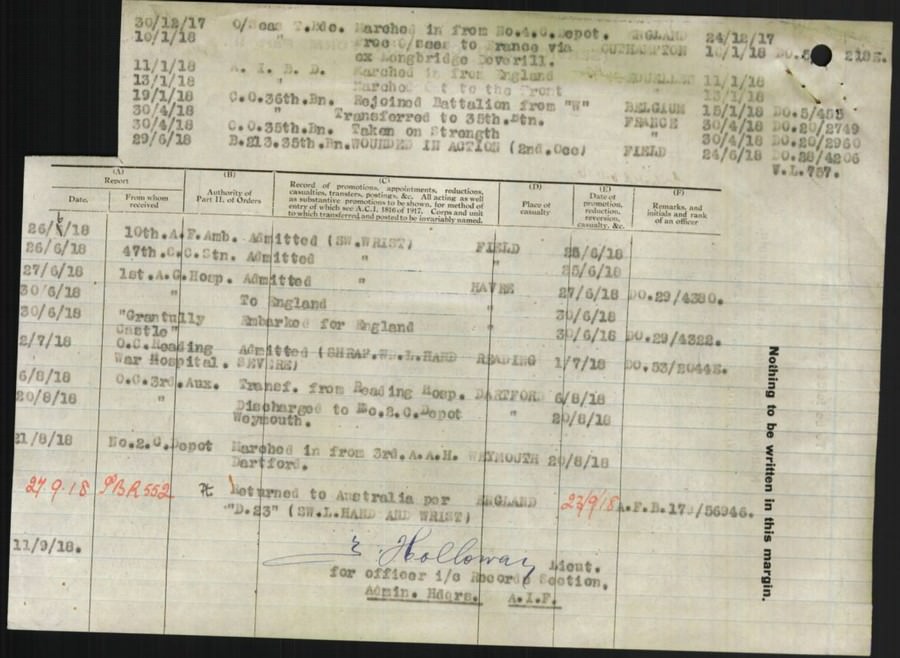 30/12/17 O/Seas T.Bde. Marched in from No.4.C.Depot. ENGLAND 24/12/17
10/1/18 " Proc O/Seas to France via SOUTHAMPTON 10/1/18 DO.5 218E.
ex Longbridge Deverill.
11/1/18 A. I. B. D. Marched in from England ROUELLES 11/1/18
13/1/18 " Marched Out to the Front 13/1/18
19/1/18 C.O.36th.Bn. Rejoined Battalion from "W" BELGIUM 15/1/18 DO.5/455
30/4/18 " Transferred to 35th.Btn. FRANCE 30/4/18 DO.20/2749
30/4/18 C.O.35th.Bn. Taken on Strength " 30/4/18 DO.20/2960
29/6/18 B.213.35th.Bn. WOUNDED IN ACTION (2nd.Occ) FIELD 24/6/18 DO.28/4206
V.L.757.
(A) (B) (C) (D) (E) (F)
Report
Date. From whom received
Authority of Part II. of Orders
Record of promotions, appointments, reductions, casualties, transfers, postings, &c. All acting as well as substantive promotions to be shown, for method of entry of which see A.C.I. 1816 of 1917. Corps and unit to which transferred and posted to be invariably named.
Place of casualty
Date of promotion, reduction, reversion, casualty, &c.
Remarks, and initials and rank of an officer
26/6/18 10th.A.F.Amb. Admitted (SW.WRIST) FIELD 25/6/18
26/6/18 47th.C.C.Stn. Admitted " " 25/6/18
27/6/18 1st.A.G.Hosp. Admitted " HAVRE 27/6/18 DO.29/4380.
30/6/18 " To England " 30/6/18
30/6/18 "Grantully Castle" Embarked for England " 30/6/18 DO.29/4322.
2/7/18 O.C.Reading War Hospital. Admitted (SHRAP.WD.L.HAND SEVERE) READING 1/7/18 DO.53/2044E.
6/8/18 O.C.3rd.Aux. Transf. from Reading Hosp. DARTFORD 6/8/18
20/8/18 " Discharged to No.2.C.Depot " 20/8/18
Weymouth.
21/8/18 No.2.C.Depot Marched in from 3rd.A.A.H. WEYMOUTH 20/8/18
Dartford.
27.9.18 PBR552 Returned to Australia per ENGLAND 23/9/18 A.F.B.179/56946.
"D.23" (SW.L.HAND AND WRIST)
11/9/18.
Holloway Lieut.
for officer i/c Records Section,
Admin. Hdqrs. A.I.F.
Nothing to be written in this margin.